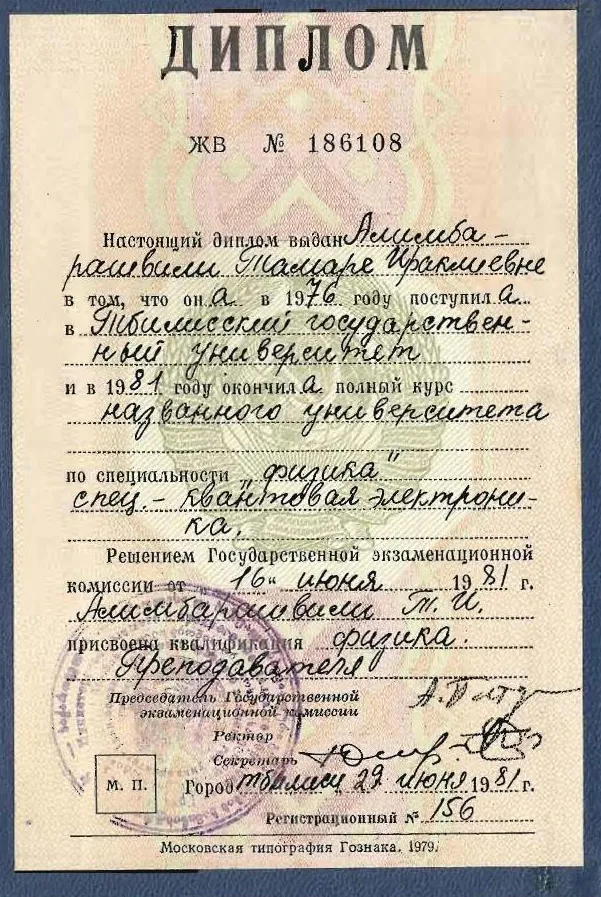 ДИПЛОМ
ЖВ № 186108
Настоящий диплом выдан Алимба-
рашвили Тамаре Ираклиевне
в том, что она в 1976 году поступила
в Тбилисский государствен-
ный университет
и в 1981 году окончила полный курс
названного университета
по специальности „физика“
спец. - квантовая электрони-
ка.
Решением Государственной экзаменационной
комиссии от „16“ июня 1981 г.
Алимбарашвили Т. И.
присвоена квалификация физика.
Преподавателя
Председатель Государственной
экзаменационной комиссии
Ректор
Секретарь
М. П.
Город Тбилиси 29 июня 1981 г.
Регистрационный № 156
Московская типография Гознака. 1979.